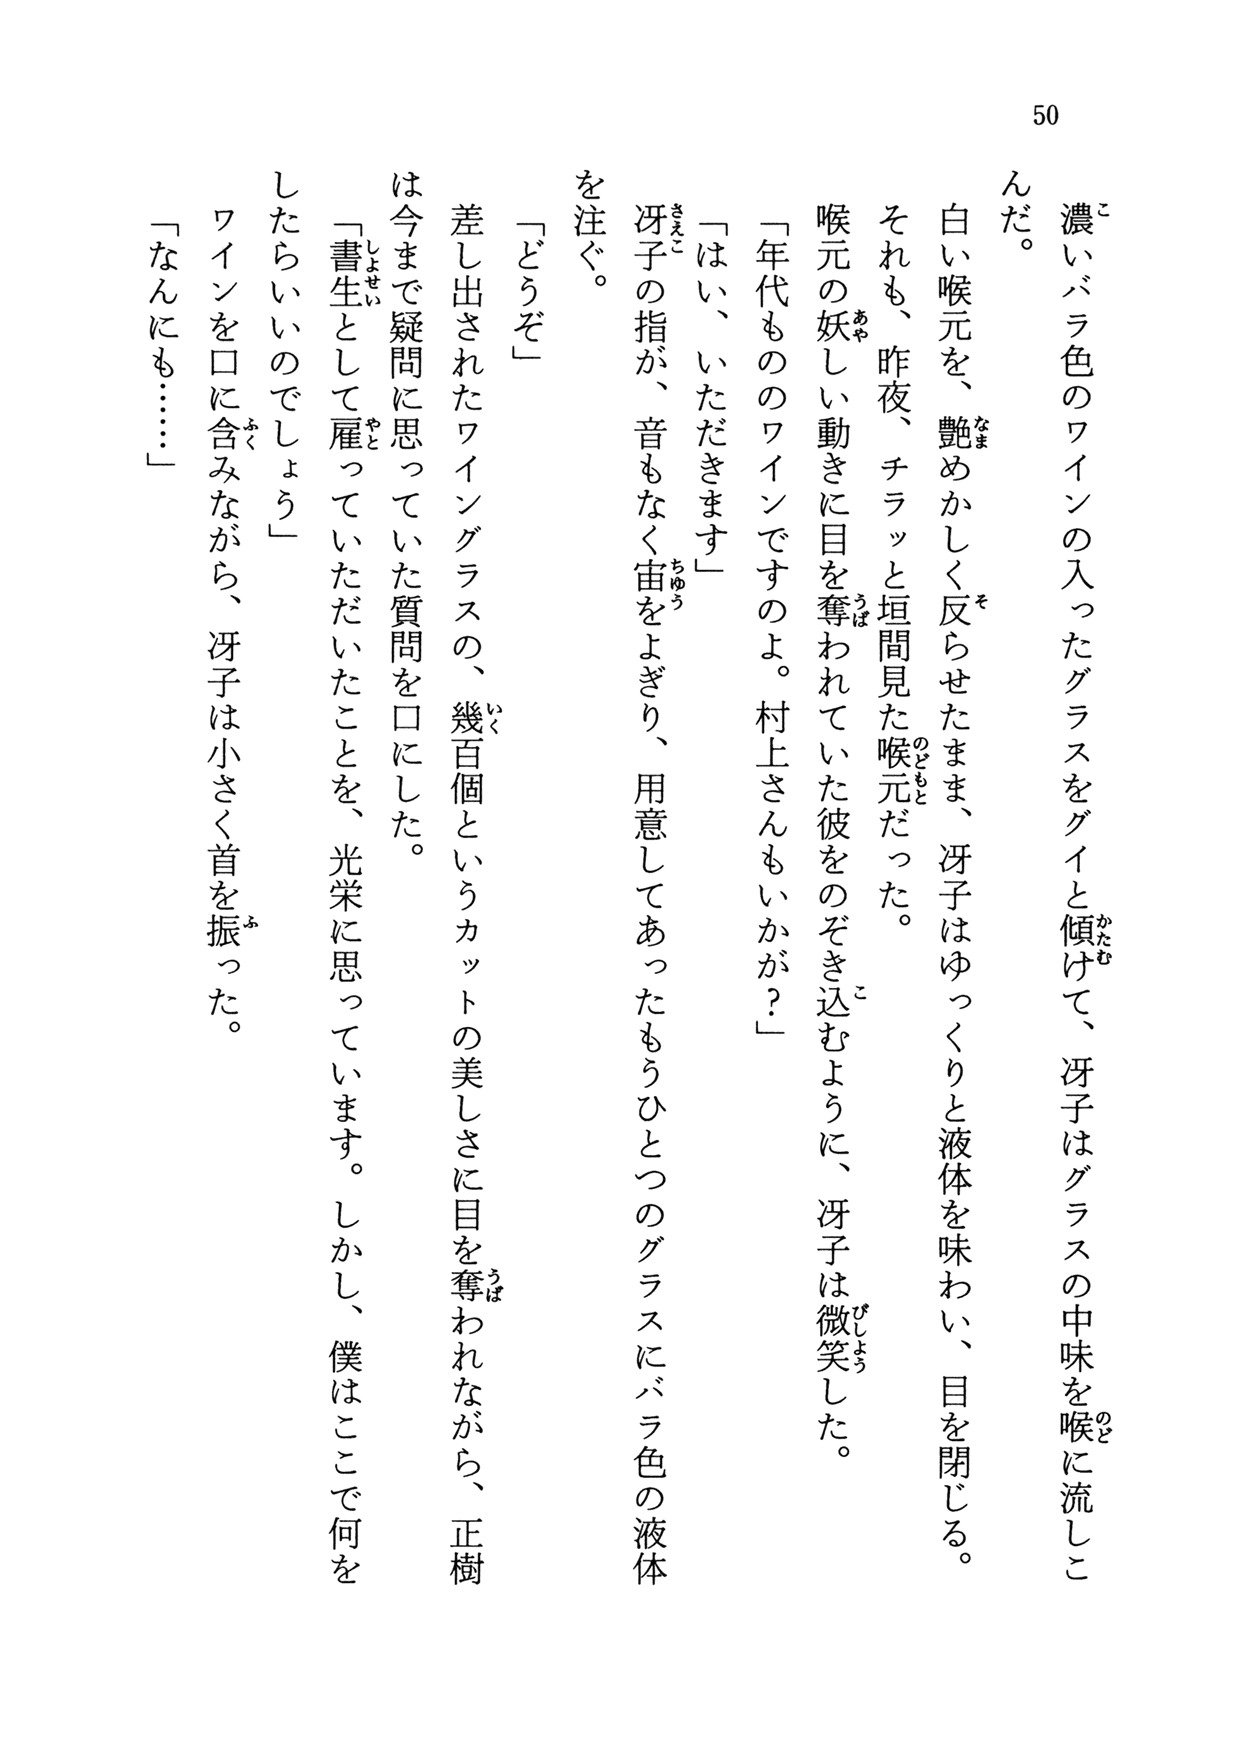 50
濃いバラ色のワインの入ったグラスをグイと傾けて、冴子はグラスの中味を喉に流しこ
んだ。
白い喉元を、艶めかしく反らせたまま、冴子はゆっくりと液体を味わい、目を閉じる。
それも、昨夜、チラッと垣間見た喉元だった。
喉元の妖しい動きに目を奪われていた彼をのぞき込むように、冴子は微笑した。
「年代もののワインですのよ。村上さんもいかが?」
「はい、いただきます」
冴子の指が、音もなく宙をよぎり、用意してあったもうひとつのグラスにバラ色の液体
を注ぐ。
「どうぞ」
差し出されたワイングラスの、幾百個というカットの美しさに目を奪われながら、正樹
は今まで疑問に思っていた質問を口にした。
「書生として雇っていただいたことを、光栄に思っています。しかし、僕はここで何を
したらいいのでしょう」
ワインを口に含みながら、冴子は小さく首を振った。
「なんにも……」